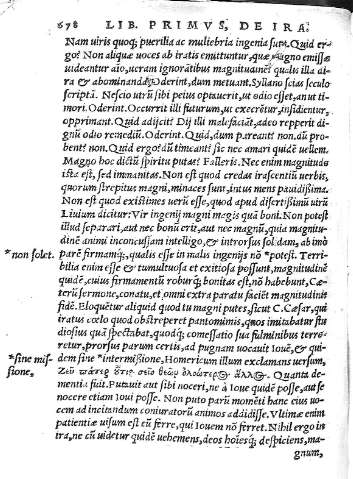 678 LIB. PRIMVS, DE IRA.
Nam uiris quoq; puerilia ac muliebria ingenia sunt. Quid er-
go? Non aliquæ uoces ab iratis emittuntur, quæ magno emissæ
uideantur aĩo, ueram ignorãtibus magnitudinẽ? qualis illa di-
ra & abominanda, Oderint, dum metuant. Syllano scias seculo
scriptã. Nescio utrũ sibi peius optauerit, ut odio esset, an ut ti-
mori. Oderint. Occurrit illi futurum, ut execrẽtur, insidientur,
opprimant. Quid adijcit? Dij illi malefaciãt, adeo repperit di-
gnũ odio remediũ. Oderint. Quid, dum pareant? non. dũ pro-
bent? non. Quid ergo? dũ timeant! sic nec amari quidẽ uellem.
Magno hoc dictũ spiritu putas? Falleris. Nec enim magnitudo
ista est, sed immanitas. Non est quod credas irascentiũ uerbis,
quorum strepitus magni, minaces sunt, intus mens pauidissima.
Non est quod existimes uerũ esse, quod apud disertissimũ uirũ
Liuium dicitur: Vir ingenij magni magis quã boni. Non potest
illud separari, aut nec bonũ erit, aut nec magnũ, quia magnitu-
dinẽ animi inconcussam intelligo, & introrsus solidam, ab imo
*non solet. parẽ firmamq;, qualis esse in malis ingenijs nõ *potest. Terri-
bilia enim esse & tumultuosa et exitiosa possunt, magnitudinẽ
quidẽ, cuius firmamentũ roburq; bonitas est, nõ habebunt. Cæ-
terũ sermone, conatu, et omni extra paratu faciẽt magnitudinis
fidẽ. Eloquẽtur aliquid quod tu magni putes, sicut C. Cæsar, qui
iratus cœlo quod obstreperet pantomimis, quos imitabatur stu
diosius quã spectabat, quodq; comessatio sua fulminibus terre-
retur, prorsus parum certis, ad pugnam uocauit Iouẽ, & qui-
*sine mis- dem sine *intermissione, Homericum illum exclamans uersum,
sione. Quanta de-
mentia fuit. Putauit aut sibi noceri, ne a Ioue quidẽ posse, aut se
nocere etiam Ioui posse. Non puto parũ momẽti hanc eius uo-
cem ad incitandum coniuratorũ animos addidisse. Vltimæ enim
patientiæ uisum est eũ ferre, qui Iouem nõ ferret. Nihil ergo in
ira, ne cũ uidetur quidẽ uehemens, deos hoiesq; despiciens, ma-
gnum,